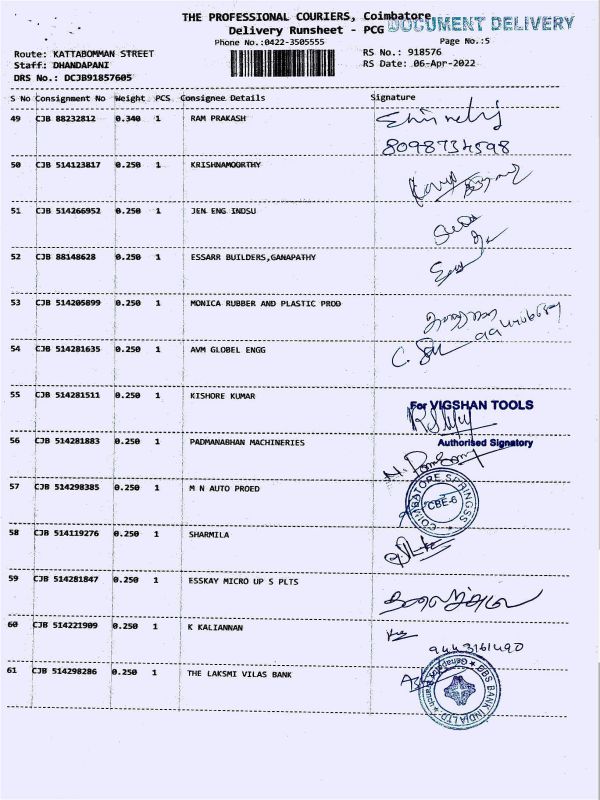 THE PROFESSIONAL COURIERS, Coimbatore
Delivery Runsheet - PCG DOCUMENT DELIVERY
Phone No.:0422-3505555 Page No.:5
Route: KATTABOMMAN STREET RS No.: 918576
Staff: DHANDAPANI RS Date: 06-Apr-2022
DRS No.: DCJB91857605
S No Consignment No Weight PCS Consignee Details Signature
49 CJB 88232812 0.340 1 RAM PRAKASH
8098734598
50 CJB 514123817 0.250 1 KRISHNAMOORTHY
51 CJB 514266952 0.250 1 JEN ENG INDSU
52 CJB 88148628 0.250 1 ESSARR BUILDERS,GANAPATHY
53 CJB 514205899 0.250 1 MONICA RUBBER AND PLASTIC PROD
54 CJB 514281635 0.250 1 AVM GLOBEL ENGG
55 CJB 514281511 0.250 1 KISHORE KUMAR
For VIGSHAN TOOLS
56 CJB 514281883 0.250 1 PADMANABHAN MACHINERIES
Authorised Signatory
57 CJB 514298385 0.250 1 M N AUTO PROED
COIMBATORE SPRINGSS
CBE-6
58 CJB 514119276 0.250 1 SHARMILA
59 CJB 514281847 0.250 1 ESSKAY MICRO UP S PLTS
60 CJB 514221909 0.250 1 K KALIANNAN
9443161490
61 CJB 514298286 0.250 1 THE LAKSMI VILAS BANK
DBS BANK INDIA LTD.
Ganapathy Branch